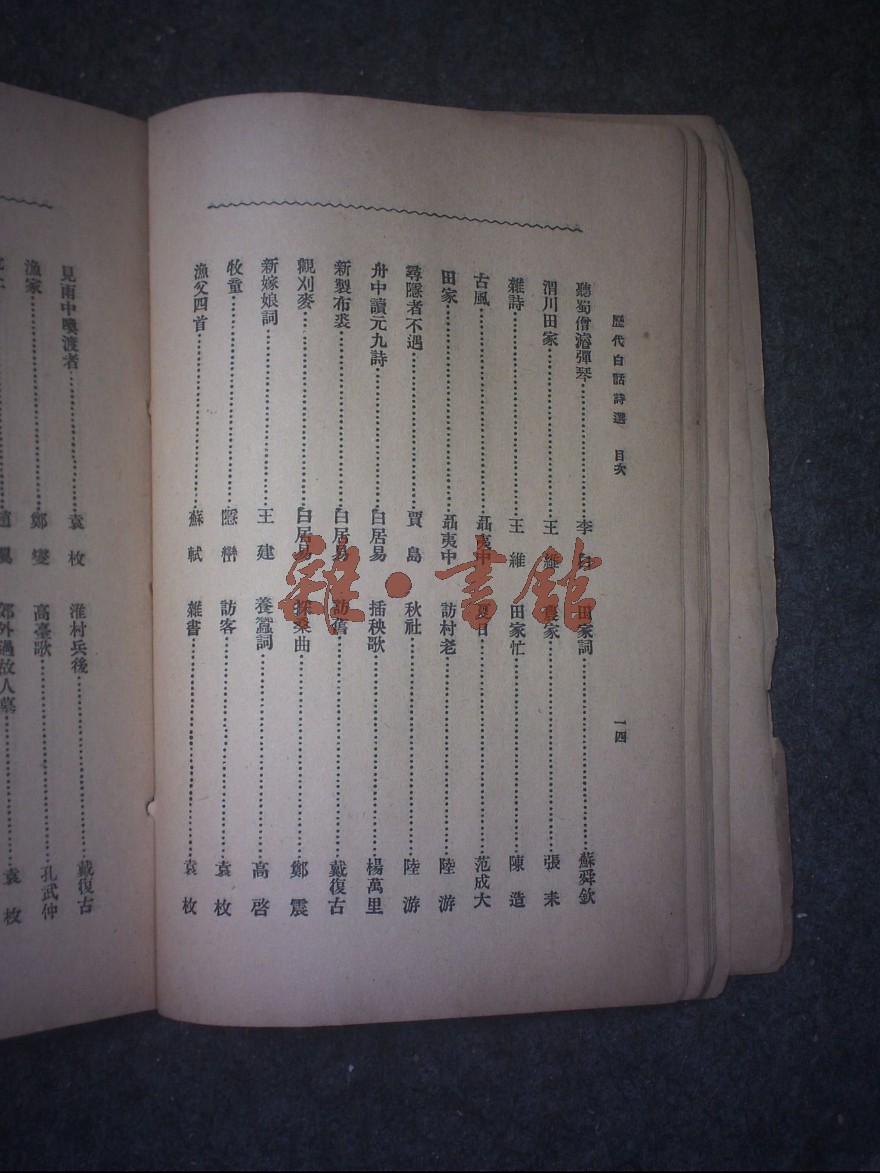 歷代白話詩選 目次 一四
聽蜀僧濬彈琴……李白 田家詞……蘇舜欽
渭川田家……王維 農家……張耒
雜詩……王維 田家忙……陳造
古風……聶夷中 夏日……范成大
田家……聶夷中 訪村老……陸游
尋隱者不遇……賈島 秋社……陸游
舟中讀元九詩……白居易 插秧歌……楊萬里
新製布裘……白居易 訪舊……戴復古
觀刈麥……白居易 採桑曲……鄭震
新嫁娘詞……王建 養蠶詞……高啓
牧童……隱巒 訪客……袁枚
漁父四首……蘇軾 雜書……袁枚
見雨中喚渡者……袁枚 淮村兵後……戴復古
漁家……鄭燮 高臺歌……孔武仲
郊外過故人墓……袁枚
雜·書館